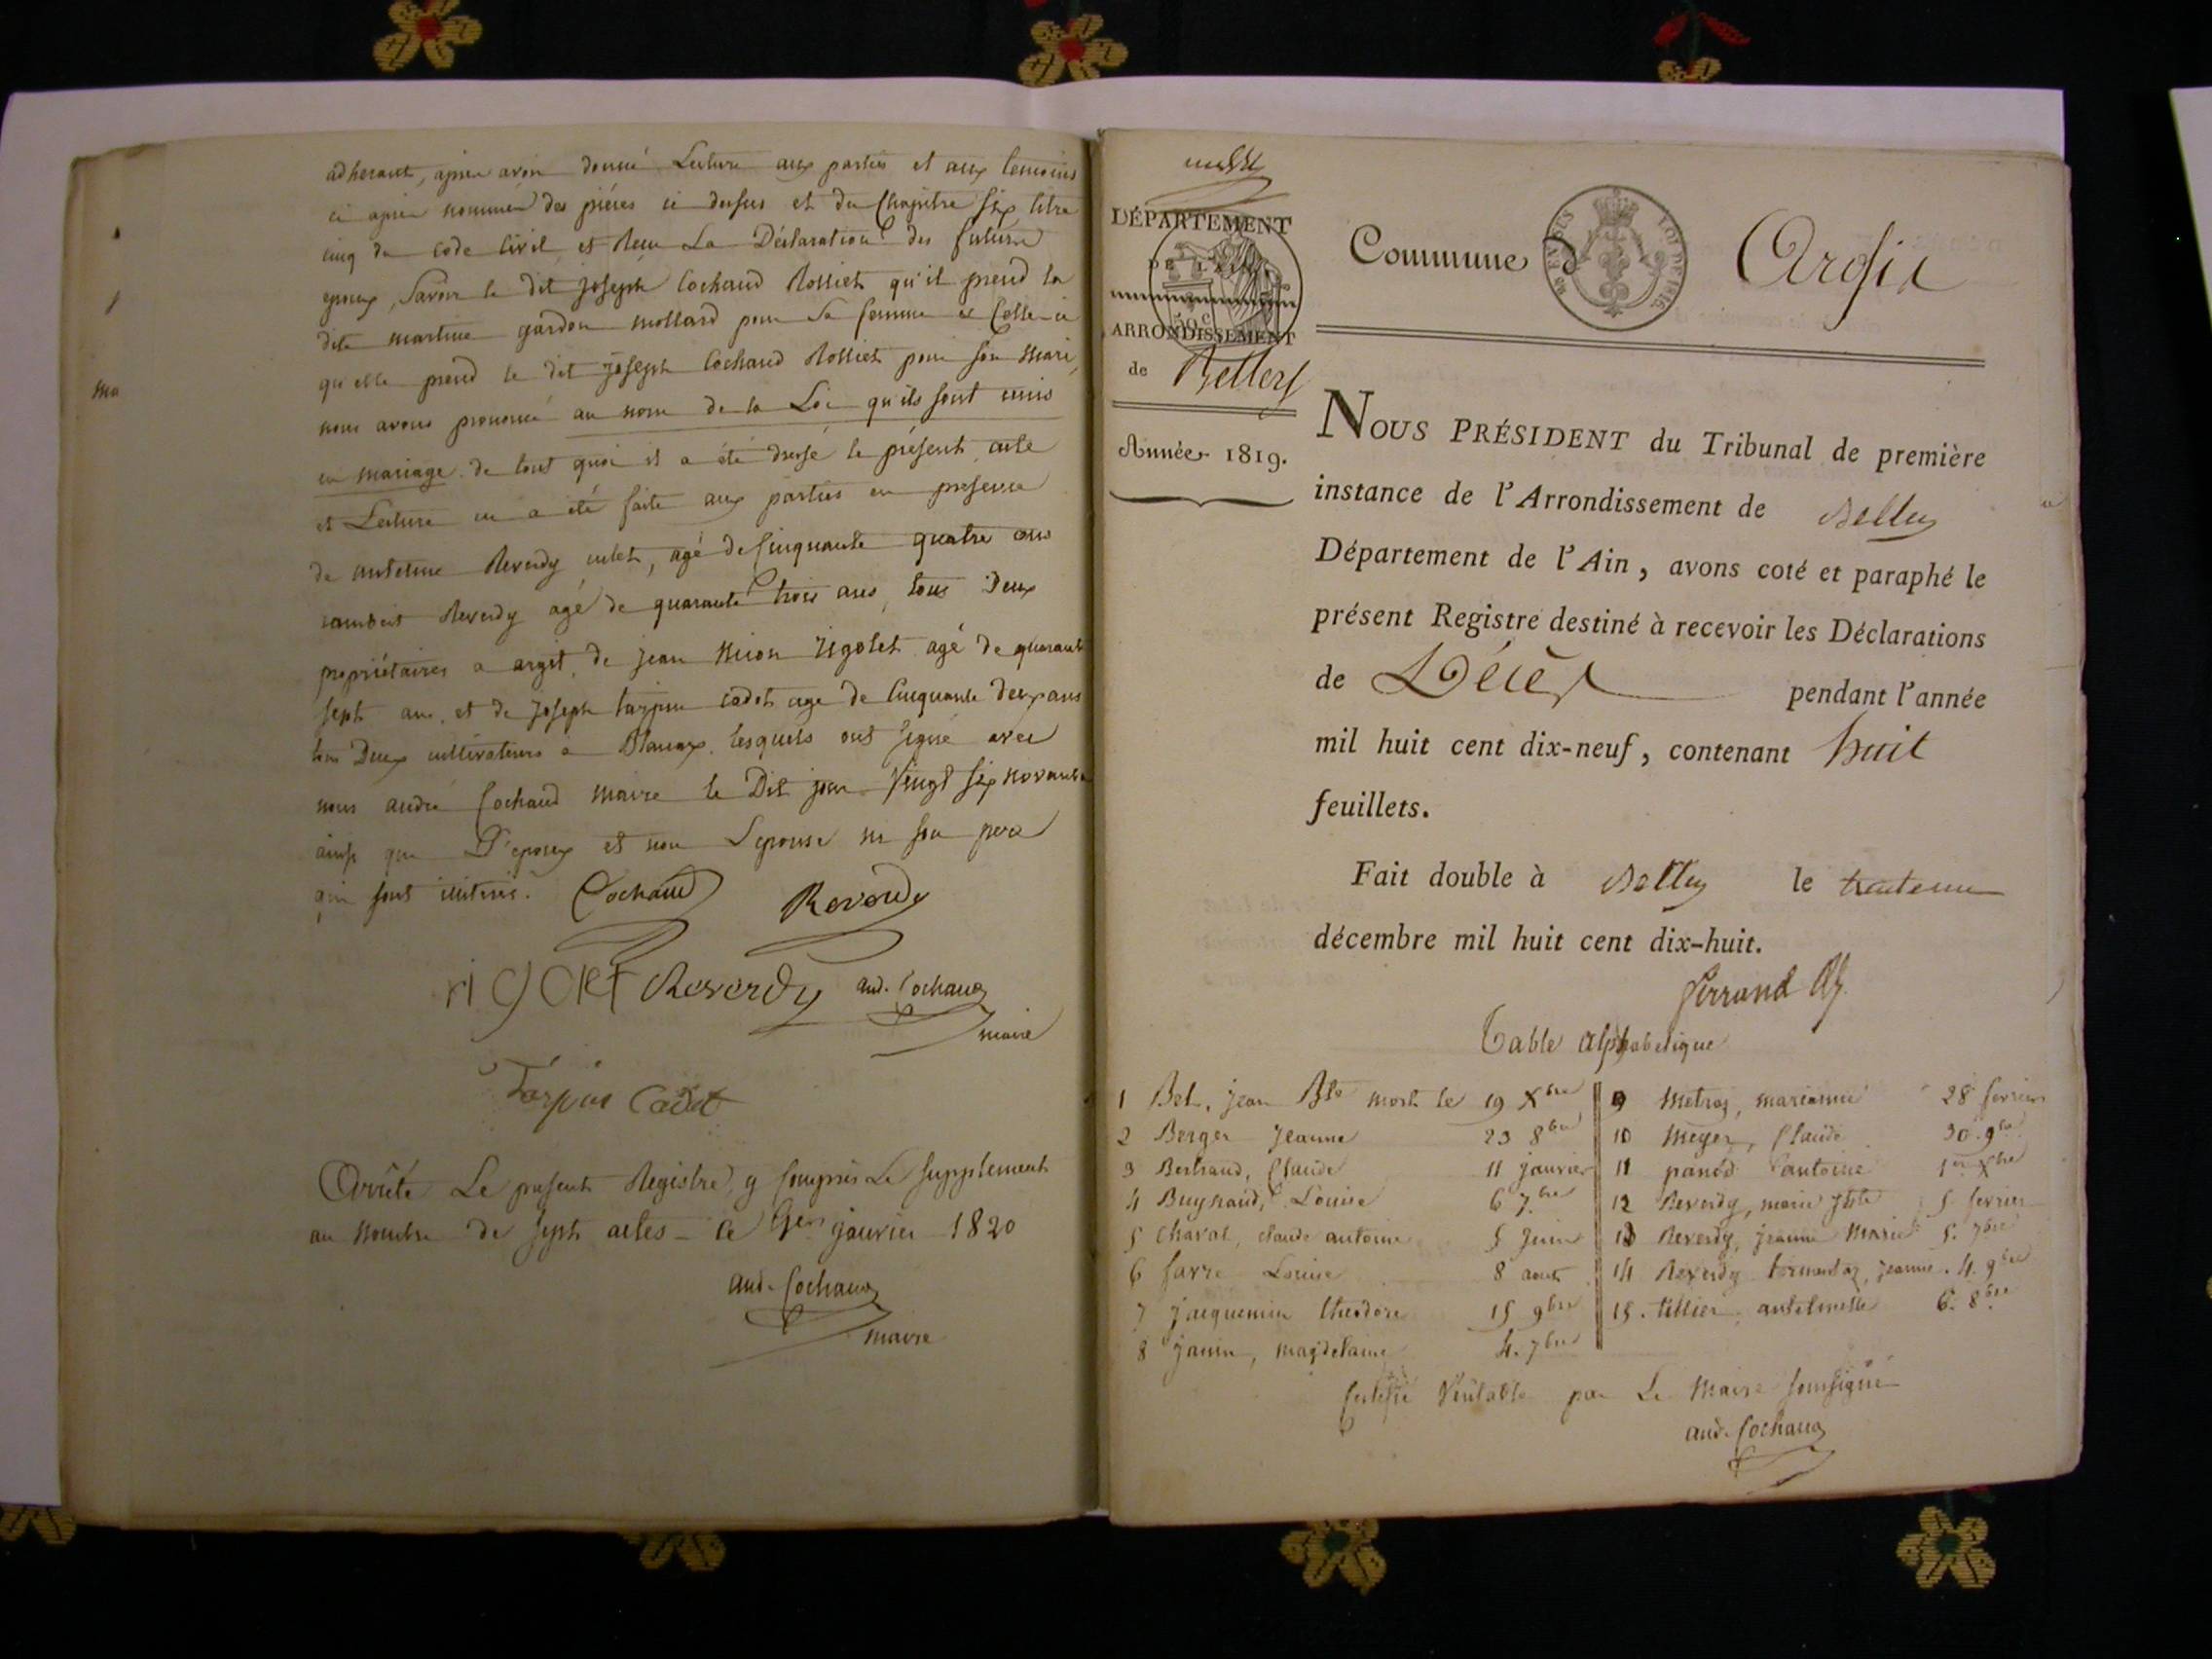 adherant, après avoir donné Lecture aux parties et aux temoins
ci après nommés des pièces ci dessus et du Chapitre six titre
cinq du code Civil et Recu La Déclaration des futurs
epoux, Savoir le dit joseph Cochaud Rolliet qu'il prend la
dite martine gardon mollard pour Sa femme et Celle-ci
qu'elle prend le dit joseph Cochaud Rolliet pour son Mari,
nous avons prononcé au nom de la Loi qu'ils sont unis
en mariage. de tout quoi il a été dressé le présent acte
et Lecture en a été faite aux parties en presence
de antelme Reverdy culet, agé de Cinquante quatre ans
rambert Reverdy agé de quarante trois ans, tous Deux
propriétaires a argit, de jean Rigolet agé de quarante
sept ans, et de joseph tarpin cadet age de Cinquante deux ans
tous Deux cultivateurs a Blanaz. lesquels ont signé avec
nous andré Cochaud maire le Dit jour Vingt six novembre
ainsi que L'epoux et non L'epouse ni son pere
qui sont illiterés. Cochaud Reverdy
rigolet Reverdy and. Cochaud
maire
Tarpin Cadet
Arrêté Le present Registre, y compris Le supplement
au nombre de sept actes - le 1er janvier 1820
and. Cochaud
maire
DÉPARTEMENT
DE L'AIN
50 c
ARRONDISSEMENT
de Belley
Année 1819.
Commune d'Argis
LOI DE 1816
NOUS PRÉSIDENT du Tribunal de première
instance de l'Arrondissement de Belley
Département de l'Ain, avons coté et paraphé le
présent Registre destiné à recevoir les Déclarations
de Décès pendant l'année
mil huit cent dix-neuf, contenant huit
feuillets.
Fait double à Belley le trente un
décembre mil huit cent dix-huit.
Table alphabetique
1 Bel, jean Bte mort le 19 Xbre
2 Berger Jeanne 23 8bre
3 Bertrand, Claude 11 janvier
4 Buynaud, Louise 6 7bre
5 Charat, claude antoine 5 Juin
6 favre Louise 8 aout
7 jacquemin theodore 15 9bre
8 janin, magdelaine 4. 7bre
9 Metraz, marianne 28 fevrier
10 Meyer, Claude 30. 9bre
11 panod antoine 1er Xbre
12 Reverdy, marie Jste 5 fevrier
13 Reverdy, jeanne Marie 5. 7bre
14 Reverdy tormentaz, jeanne. 4. 9bre
15. tillier, antelmette 6. 8bre
Certifié Véritable par Le Maire soussigné
and. Cochaud